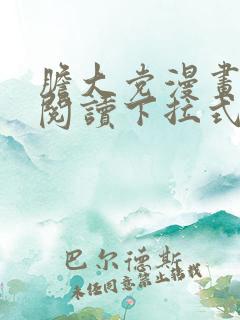 膽大党漫畫
閱讀下拉式
巴尔德斯
未经同意禁止转载